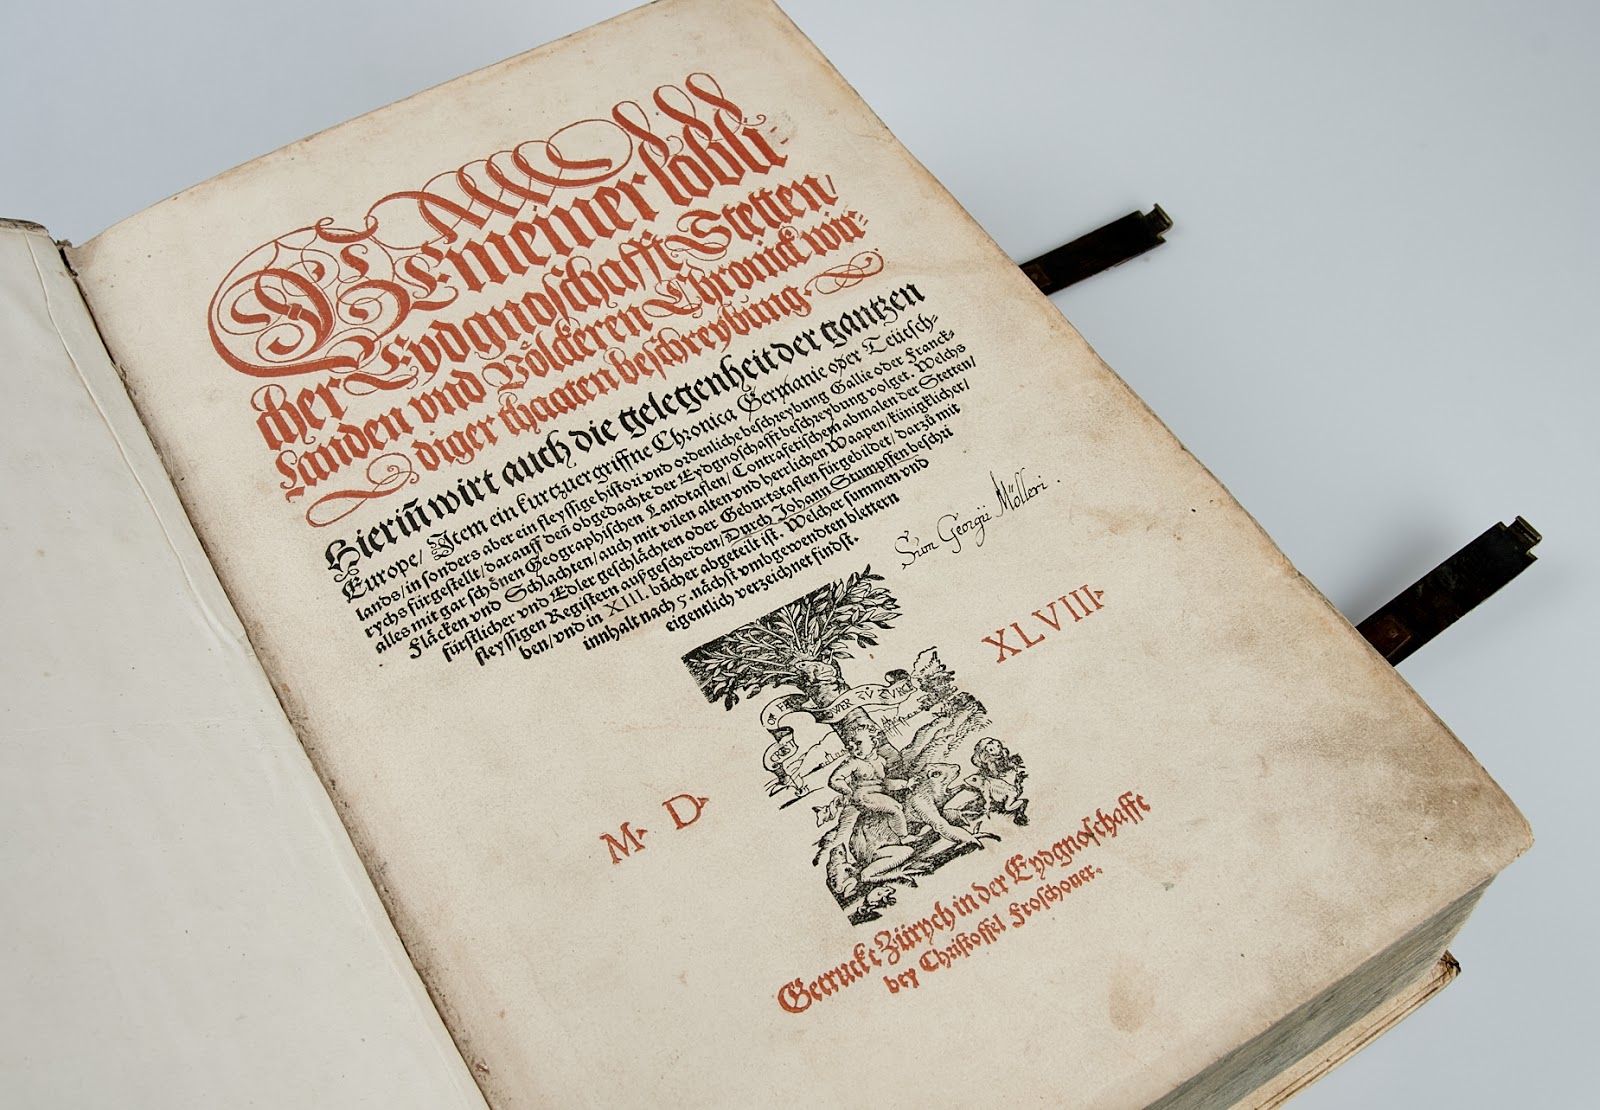 GEmeiner lobli
cher Eydgnoschafft Stetten/
Landen vnd Völckeren Chronick wir=
diger thaaten beschreybung.
Hieriñ wirt auch die gelegenheit der gantzen
Europe/ Item ein kurtzuergriffne Chronica Germanie oder Teütsch=
lands/ in sonders aber ein fleyssige histori vnd ordenliche beschreybung Gallie oder Franck=
rychs fürgestellt/ darauff deñ obgedachte der Eydgnoschafft beschreybung volget. Welchs
alles mit gar schönen Geographischen Landtaflen/ Contrafetischem abmalen der Stetten/
Fläcken vnd Schlachten/ auch mit vilen alten vnd herrlichen Waapen/ künigklicher/
fürstlicher vnd Edler geschlächten oder Geburtstaflen fürgebildet/ darzů mit
fleyssigen Registern außgescheiden/ Durch Johann Stumpffen beschri
ben/ vnd in XIII. bücher abgeteilt ist. Welcher summen vnd
innhalt nach 5. nächst vmbgewendten blettern
eigentlich verzeichnet findst.
Sum Georgii Mölleri.
CHRISTOF
FROSCHOWER ZV ZVRICH
M. D. XLVIII.
Getruckt Zürych in der Eydgnoschafft
bey Christoffel Froschouer.